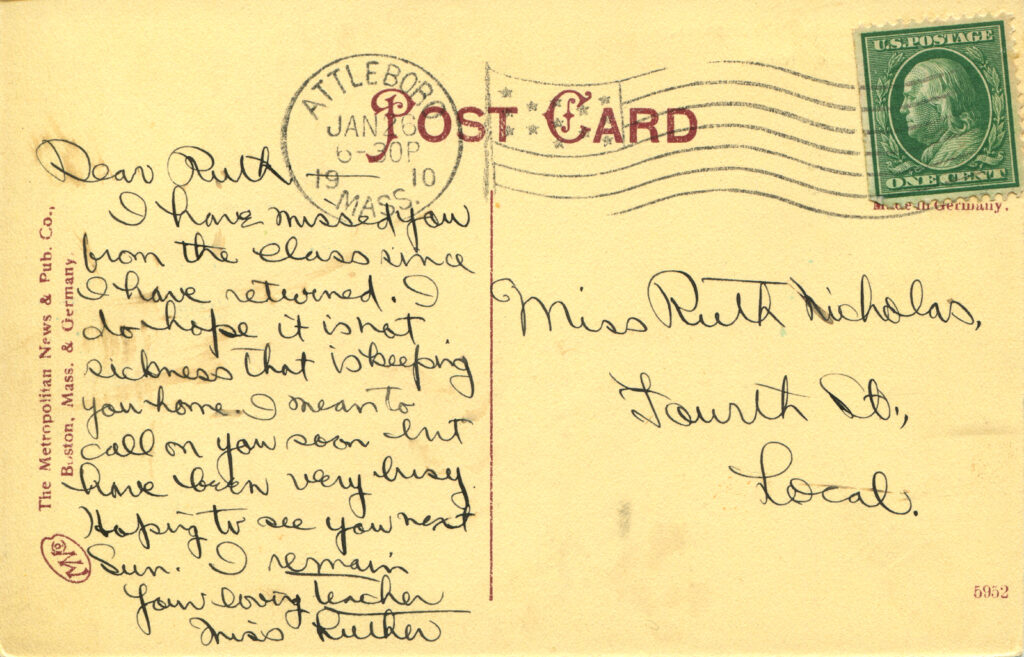 POST CARD
ATTLEBORO
JAN 26
6-30P
19 10
MASS.
U.S. POSTAGE
ONE CENT
Made in Germany.
Dear Ruth
I have missed you
from the class since
I have returned. I
do hope it is not
sickness that is keeping
you home. I mean to
call on you soon but
have been very busy
Hoping to see you next
Sun. I remain
Your loving teacher
Miss
Miss Ruth Nicholas,
Fourth St.,
Local.
The Metropolitan News & Pub. Co.,
Boston, Mass. & Germany.
5952